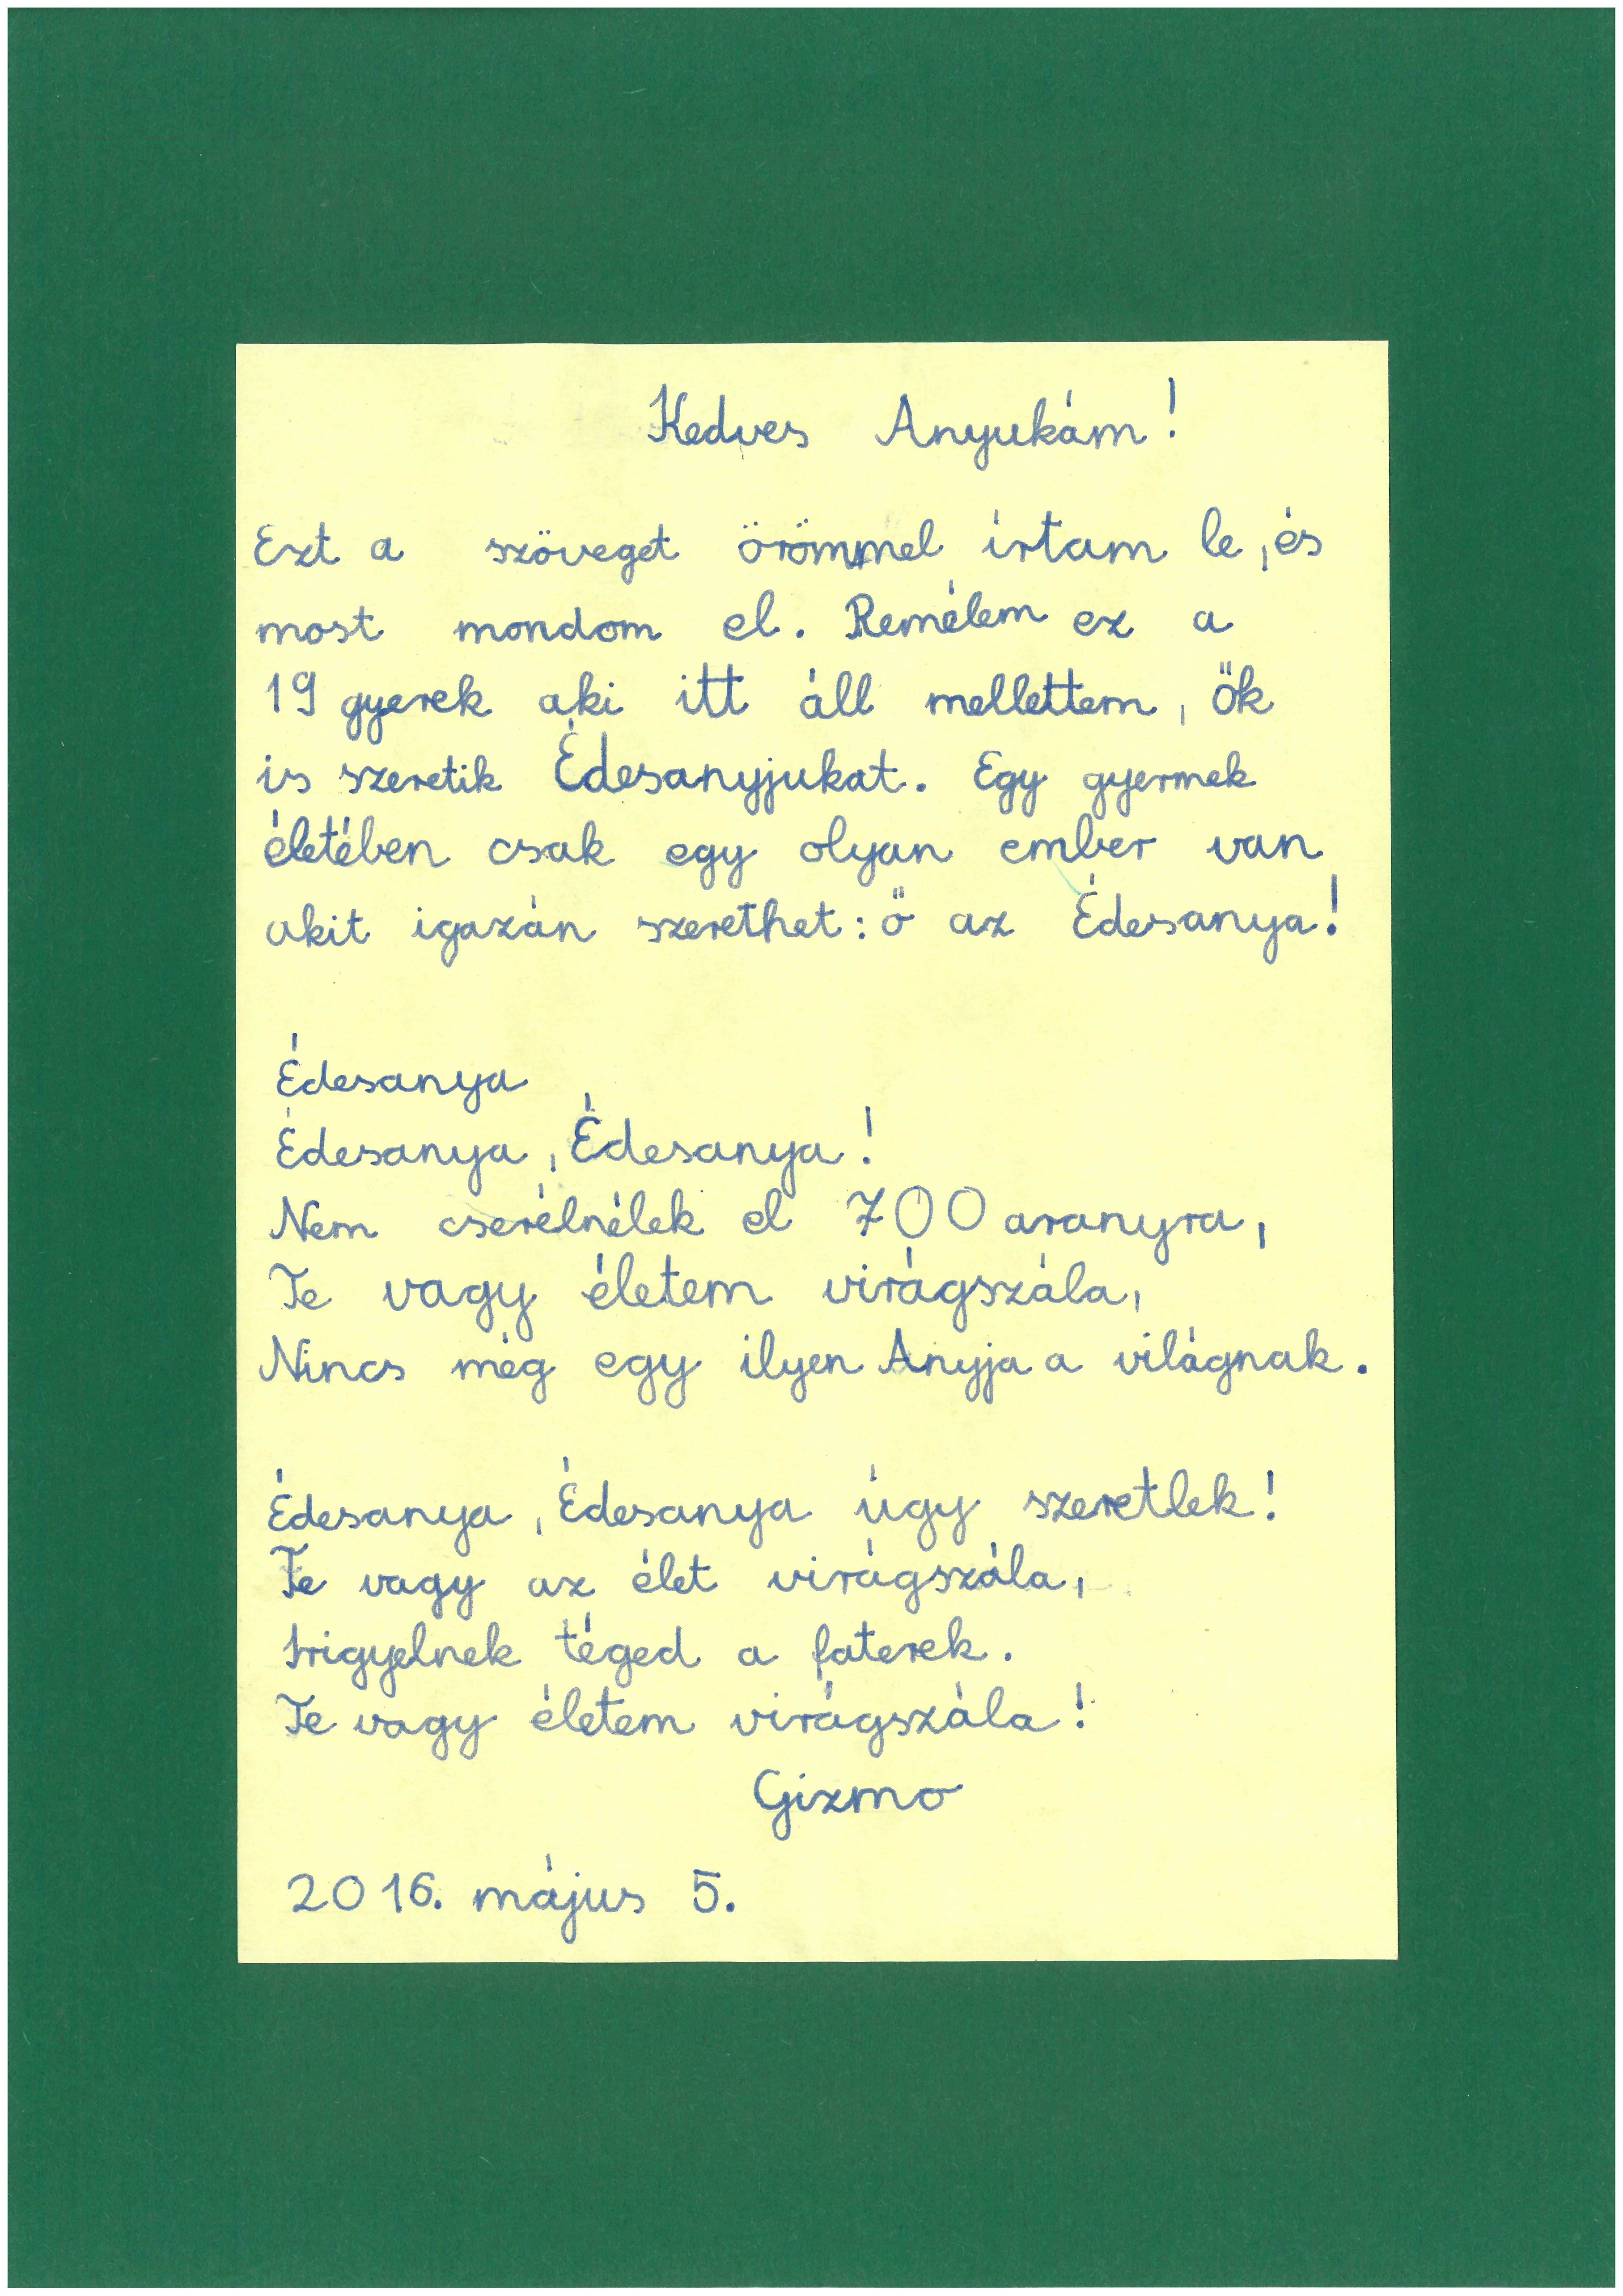 Kedves Anyukám!
Ezt a szöveget örömmel írtam le, és
most mondom el. Remélem ez a
19 gyerek aki itt áll mellettem, ők
is szeretik Édesanyjukat. Egy gyermek
életében csak egy olyan ember van
akit igazán szerethet: ő az Édesanya!
Édesanya
Édesanya, Édesanya!
Nem cserélnélek el 700 aranyra,
Te vagy életem virágszála,
Nincs még egy ilyen Anyja a világnak.
Édesanya, Édesanya úgy szeretlek!
Te vagy az élet virágszála,
Irigyelnek téged a faterek.
Te vagy életem virágszála!
Gizmo
2016. május 5.